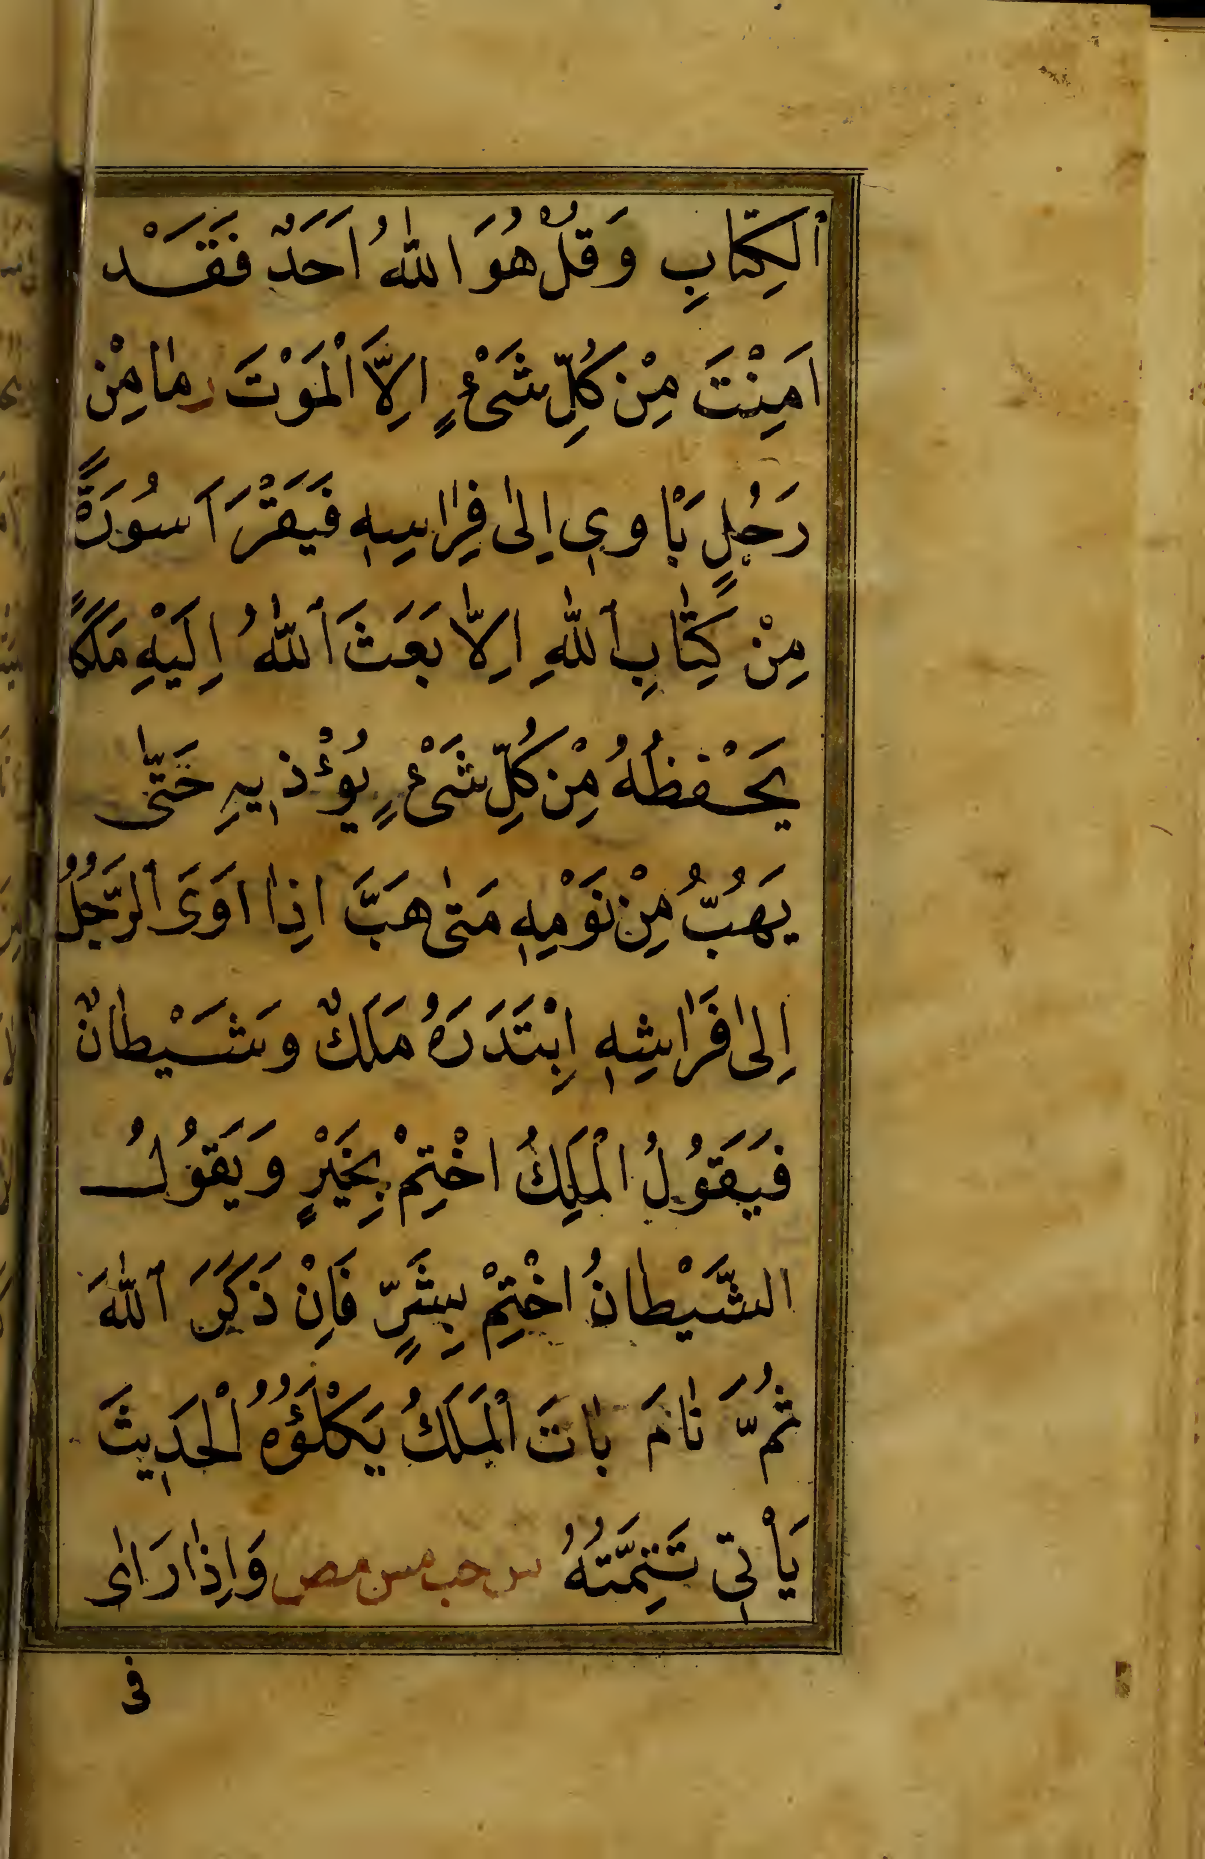 اَلكِتَابِ وَقُلْ هُوَ اللهُ اَحَدٌ فَقَدْ
اَمِنْتَ مِنْ كُلِّ شَىْءٍ اِلاَّ الْمَوْتَ ر مَا مِنْ
رَجُلٍ يَاْوِى اِلىٰ فِرَاسِهٖ فَيَقْرَاَ سُورَةً
مِنْ كِتَابِ اللهِ اِلاَّ بَعَثَ اللهُ اِلَيْهِ مَلَكاً
يَحْفَظُهُ مِنْ كُلِّ شَىْءٍ يُوْءذِيهِ حَتّٰى
يَهُبَّ مِنْ نَوْمِهٖ مَتىٰ هَبَّ اِذَا اَوَى الرَّجُلُ
اِلىٰ فَرَاشِهٖ اِبْتَدَرَهُ مَلَكٌ وَشَيْطَانٌ
فَيَقُولُ الْمَلِكُ اخْتِمْ بِخَيْرٍ وَيَقُولُ
الشَّيْطَانُ اخْتِمْ بِشَرٍّ فَاِنْ ذَكَرَ اللهَ
ثُمَّ نَامَ بَاتَ الْمَلَكُ يَكْلَؤُهُ الْحَدِيثَ
يَأْتِى تَتِمَّتُهُ س حب مس مص وَاِذَا رَاٰى
فى